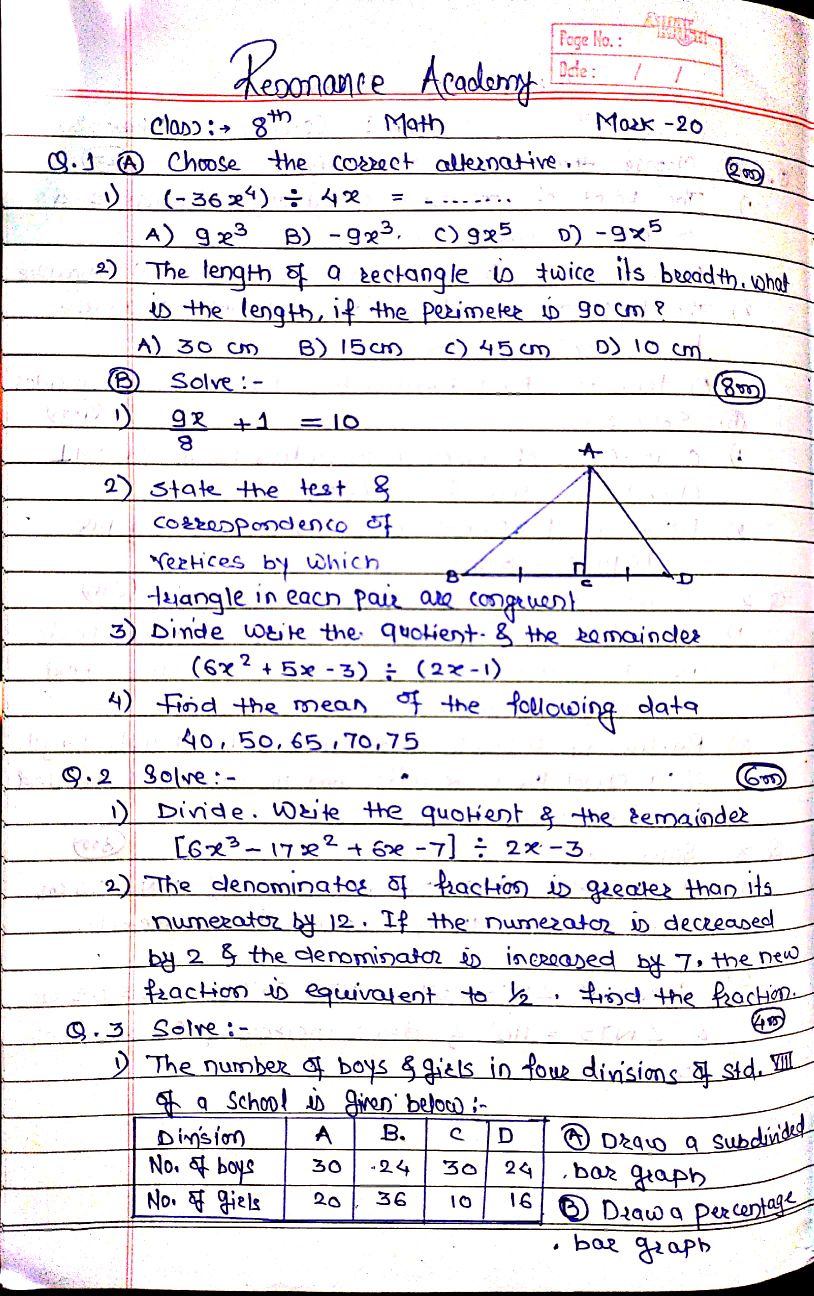 Page No. :
Date : / /
Resonance Academy
Class :→ 8th Math Mark -20
Q.1 (A) Choose the correct alternative. (2m)
1) (-36x⁴) ÷ 4x = - .......
A) 9x³ B) -9x³. C) 9x⁵ D) -9x⁵
2) The length of a rectangle is twice its breadth. what
is the length, if the perimeter is 90 cm ?
A) 30 cm B) 15cm C) 45cm D) 10 cm.
(B) Solve :- (8m)
1) 9x/8 + 1 = 10
2) State the test &
correspondence of
vertices by which
triangle in each pair are congruent
A
B C D
3) Divide write the quotient & the remainder
(6x² + 5x - 3) ÷ (2x - 1)
4) Find the mean of the following data
40, 50, 65, 70, 75
Q.2 Solve :- (6m)
1) Divide. Write the quotient & the remainder
[6x³ - 17x² + 6x - 7] ÷ 2x - 3
2) The denominator of fraction is greater than its
numerator by 12. If the numerator is decreased
by 2 & the denominator is increased by 7. the new
fraction is equivalent to ½. find the fraction.
Q.3 Solve :- (4m)
1) The number of boys & girls in four divisions of std. VIII
of a school is given below :-
Division A B. C D
No. of boys 30 24 30 24
No. of girls 20 36 10 16
(A) Draw a subdivided
bar graph
(B) Draw a percentage
bar graph